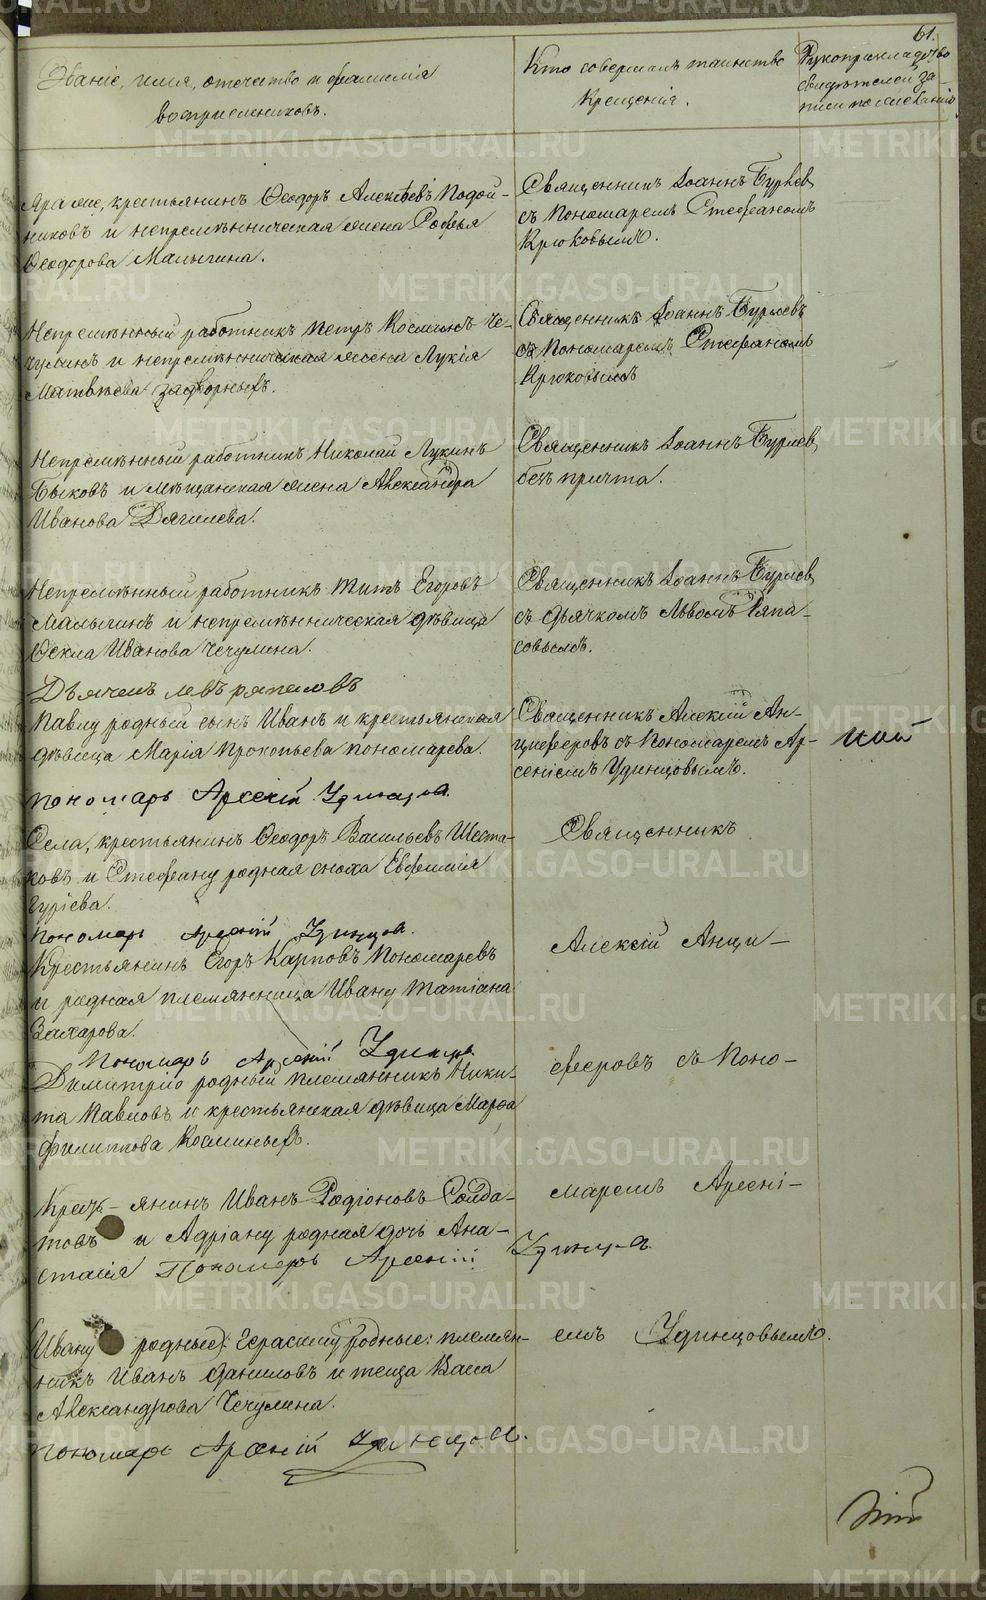 61.
Званіе, имя, отечество и фамилія
воспріемниковъ.
Кто совершалъ таинство
крещенія.
Рукоприкладство
свидѣтелей за-
писи по желанію
крестьянинъ Ѳеодоръ Алексѣевъ Подой-
никовъ и непремѣнническая жена Софья
Ѳеодорова Малыгина.
Священникъ Іоаннъ Бурлев
съ Пономаремъ Стефаномъ
Крюковымъ.
Непремѣнный работникъ Петръ Косминъ Че-
чулинъ и непремѣнническая жена Лукія
Матвѣева Задворныхъ.
Священникъ Іоаннъ Бурлевъ
съ Пономаремъ Стефаномъ
Крюковымъ
Непремѣнный работникъ Николай Лукинъ
Быковъ и мѣщанская жена Александра
Иванова Дягилева.
Священникъ Іоаннъ Бурлев
безъ причта.
Непремѣнный работникъ Титъ Егоровъ
Малыгинъ и непремѣнническая дѣвица
Ѳекла Иванова Чечулина.
Священникъ Іоаннъ Бурлев
съ дьячкомъ Львомъ Ряпа-
совымъ.
Дьячекъ Левъ Ряпасовъ
Павлу родный сынъ Иванъ и крестьянская
дѣвица Марія Прокопьева Пономарева.
Священникъ Алексій Ан-
циферовъ съ Пономаремъ Ар-
сеніемъ Удинцовымъ.
Пономарь Арсеній Удинцов.
Села, крестьянинъ Ѳеодоръ Васильевъ Шеста-
ковъ и Стефану родная сноха Евфимія
Гуріева.
Священникъ
Пономарь Арсеній Удинцов.
Крестьянинъ Егоръ Карповъ Пономаревъ
и родная племянница Ивану Татіана
Захарова.
Алексій Анци-
Пономарь Арсеній Удинцов
Димитрію родный племянникъ Ники-
та Павловъ и крестьянская дѣвица Марѳа
Филиппова Косминыхъ.
феровъ съ Поно-
янинъ Иванъ Родіоновъ Солда-
товъ и Адріану родная дочь Ана-
стасія Пономарь Арсеній Удинцов
маремъ Арсені-
Ивану родные: племян-
никъ Иванъ Даниловъ и теща Васса
Александрова Чечулина.
емъ Удинцовымъ.
Пономарь Арсеній Удинцов.
METRIKI.GASO-URAL.RU